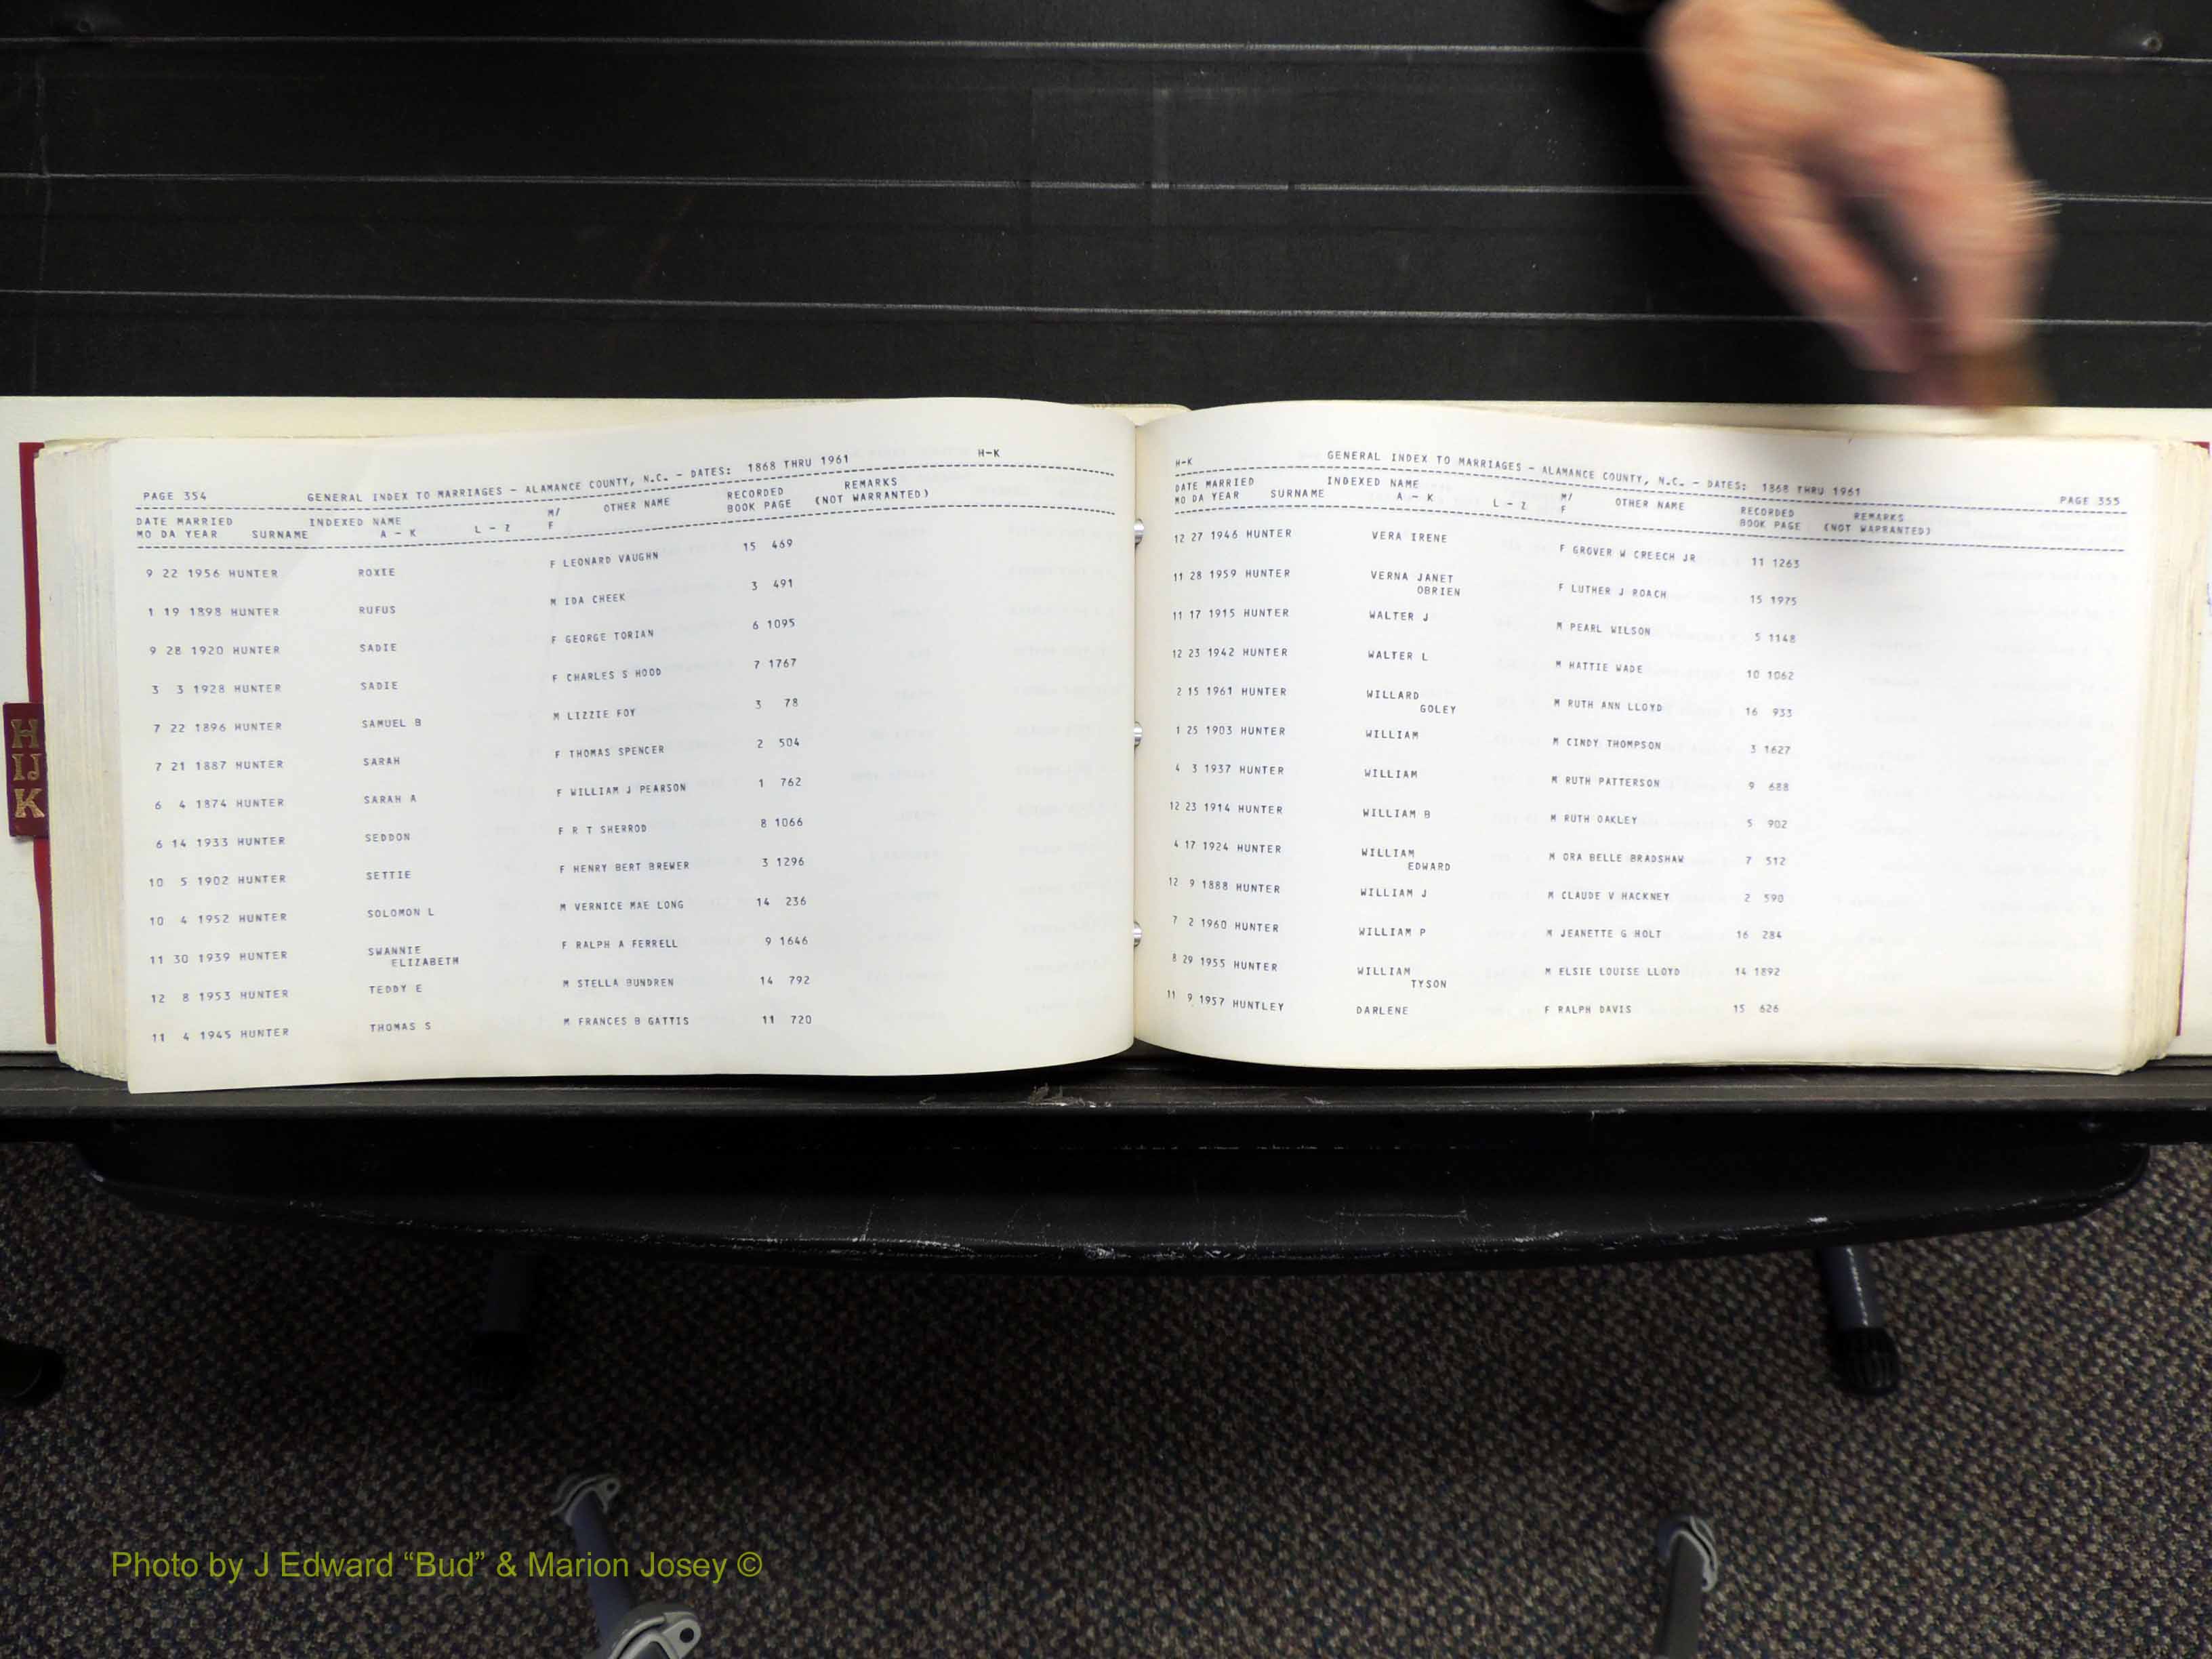 H
IJ
K
PAGE 354 GENERAL INDEX TO MARRIAGES - ALAMANCE COUNTY, N.C. - DATES: 1868 THRU 1961 H-K
DATE MARRIED INDEXED NAME M/ OTHER NAME RECORDED REMARKS
MO DA YEAR SURNAME A - K L - Z F BOOK PAGE (NOT WARRANTED)
9 22 1956 HUNTER ROXIE F LEONARD VAUGHN 15 469
1 19 1898 HUNTER RUFUS M IDA CHEEK 3 491
9 28 1920 HUNTER SADIE F GEORGE TORIAN 6 1095
3 3 1928 HUNTER SADIE F CHARLES S HOOD 7 1767
7 22 1896 HUNTER SAMUEL B M LIZZIE FOY 3 78
7 21 1887 HUNTER SARAH F THOMAS SPENCER 2 504
6 4 1874 HUNTER SARAH A F WILLIAM J PEARSON 1 762
6 14 1933 HUNTER SEDDON F R T SHERROD 8 1066
10 5 1902 HUNTER SETTIE F HENRY BERT BREWER 3 1296
10 4 1952 HUNTER SOLOMON L M VERNICE MAE LONG 14 236
11 30 1939 HUNTER SWANNIE F RALPH A FERRELL 9 1646
ELIZABETH
12 8 1953 HUNTER TEDDY E M STELLA BUNDREN 14 792
11 4 1945 HUNTER THOMAS S M FRANCES B GATTIS 11 720
H-K GENERAL INDEX TO MARRIAGES - ALAMANCE COUNTY, N.C. - DATES: 1868 THRU 1961 PAGE 355
DATE MARRIED INDEXED NAME M/ OTHER NAME RECORDED REMARKS
MO DA YEAR SURNAME A - K L - Z F BOOK PAGE (NOT WARRANTED)
12 27 1946 HUNTER VERA IRENE F GROVER W CREECH JR 11 1263
11 28 1959 HUNTER VERNA JANET F LUTHER J ROACH 15 1975
OBRIEN
11 17 1915 HUNTER WALTER J M PEARL WILSON 5 1148
12 23 1942 HUNTER WALTER L M HATTIE WADE 10 1062
2 15 1961 HUNTER WILLARD M RUTH ANN LLOYD 16 933
GOLEY
1 25 1903 HUNTER WILLIAM M CINDY THOMPSON 3 1627
4 3 1937 HUNTER WILLIAM M RUTH PATTERSON 9 688
12 23 1914 HUNTER WILLIAM B M RUTH OAKLEY 5 902
4 17 1924 HUNTER WILLIAM M ORA BELLE BRADSHAW 7 512
EDWARD
12 9 1888 HUNTER WILLIAM J M CLAUDE V HACKNEY 2 590
7 2 1960 HUNTER WILLIAM P M JEANETTE G HOLT 16 284
8 29 1955 HUNTER WILLIAM M ELSIE LOUISE LLOYD 14 1892
TYSON
11 9 1957 HUNTLEY DARLENE F RALPH DAVIS 15 626
Photo by J Edward “Bud” & Marion Josey ©